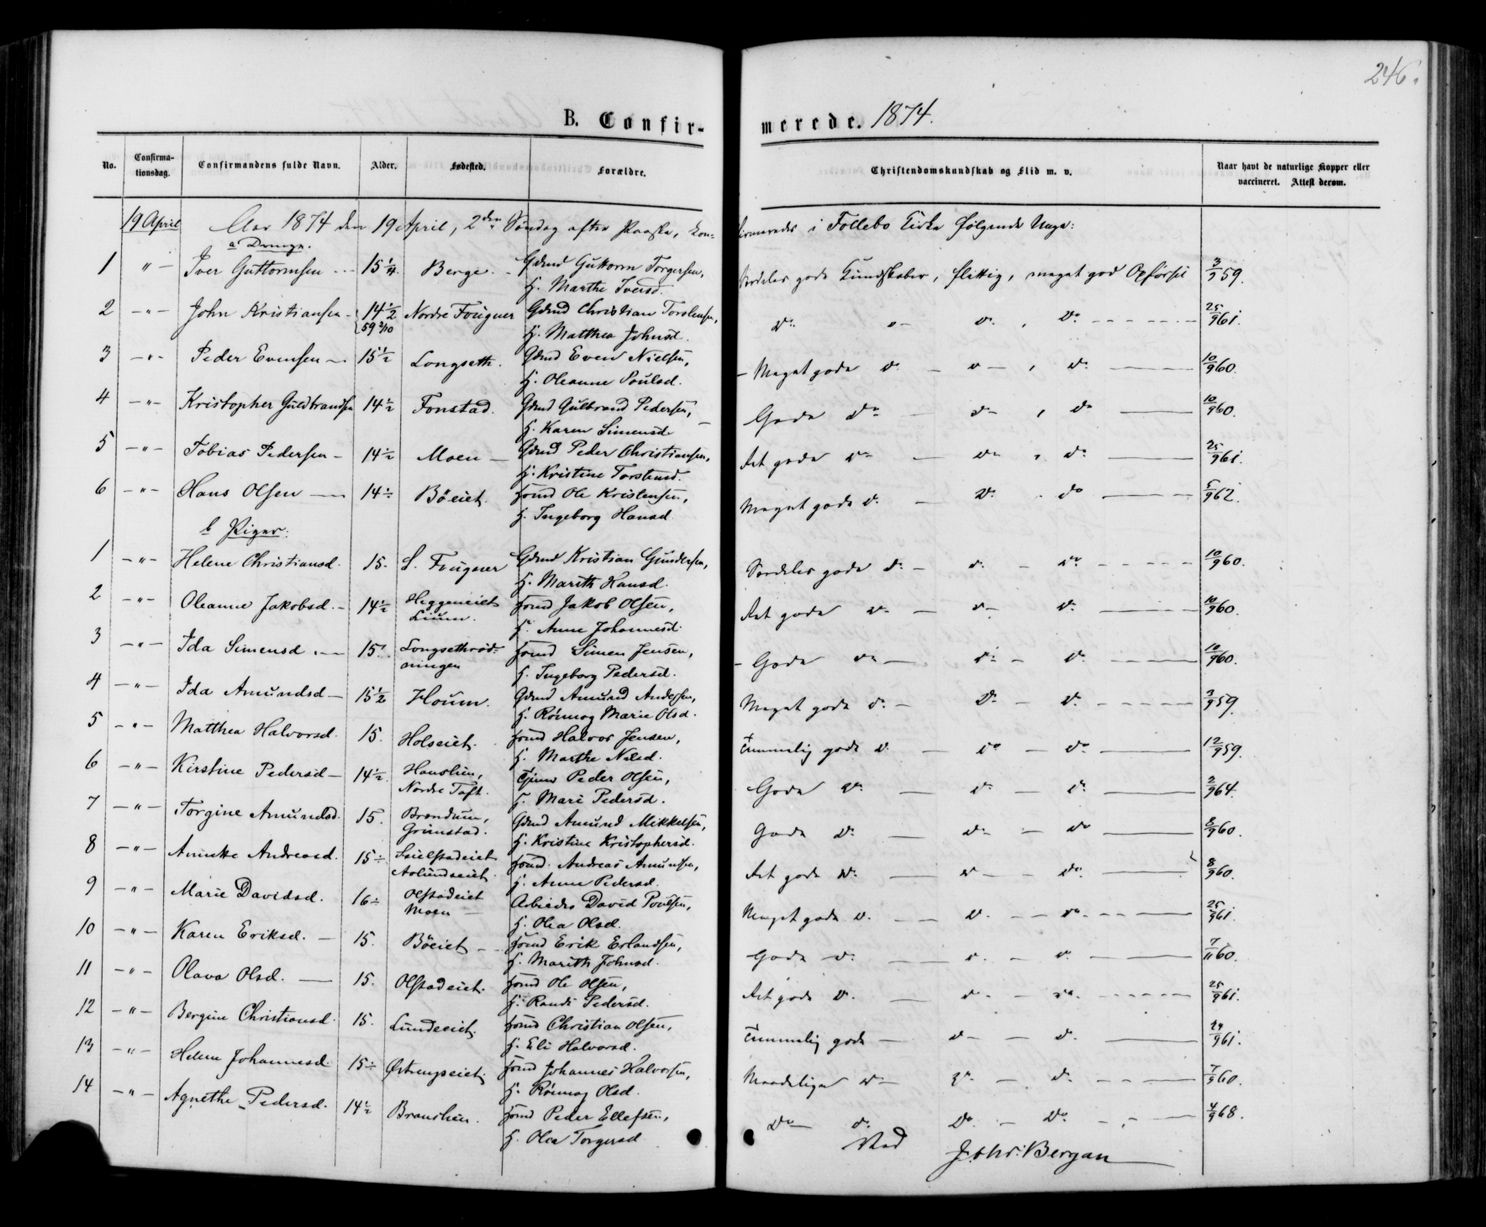 246.
B. Confir- merede. 1874.
No. Confirma-tionsdag. Confirmandens fulde Navn. Alder. Fødested. Forældre. Christendomskundskab og Flid m. v. Naar havt de naturlige Kopper eller vaccineret. Attest derom.
19 April Aar 1874 den 19 April, 2den Søndag efter Paaske, kon- firmeredes i Follebo Kirke følgende Unge:
a Drenge.
1 -"- Iver Guttormsen 15 1/4 Berge. Gdmd Guttorm Torgersen, Særdeles gode Kundskaber, flittig, meget god Opførsel 3/9 59.
H. Marthe Iversd.
2 -"- John Kristiansen 14 1/2 Nordre Fougner Gdmd Christian Torstensen, do do do 25/9 61.
59 2/10 H. Matthea Johnsd.
3 -"- Peder Evensen 15 1/2 Longseth. Gdmd Even Nielsen, Meget gode do do do 10/9 60.
H. Oleanne Poulsd.
4 -"- Kristopher Guldbrandsen 14 1/2 Fonstad. Gdmd Gulbrand Pedersen, Gode do do do 10/9 60.
H. Karen Simensd.
5 -"- Tobias Pedersen 14 1/2 Moen Gdmd Peder Christiansen, Ret gode do do do 25/9 61.
H. Kristine Torstensd.
6 -"- Hans Olsen 14 1/2 Böeiet. Huusmd Ole Kristensen, Meget gode do do do 5/9 62.
H. Ingeborg Hansd
b Piger.
1 -"- Helene Christiansd. 15. S. Fougner Gdmd Kristian Gundersen, Særdeles gode do do do 10/9 60.
H. Marith Hansd.
2 -"- Oleanne Jakobsd. 14 1/2 Heggeneiet Jakob Olsen, Ret gode do do do 10/9 60.
H. Anne Johannesd.
3 -"- Ida Simensd 15 Longsethrød- Simen Jensen, Gode do do do 10/9 60.
ningen H. Ingeborg Pedersd.
4 -"- Ida Amundsd 15 1/2 Houm. Gdmd Amund Andersen, Meget gode do do do 3/9 59.
H. Rönnog Marie Olsd.
5 -"- Matthea Halvorsd. 15. Holseiet. Halvor Jensen, Temmelig gode do do do 12/9 59.
H. Marthe Nilsd.
6 -"- Kirstine Pedersd 14 1/2 Hanslien, Peder Olsen, Gode do do do 2/9 64.
Nordre Toft. H. Mari Pedersd.
7 -"- Torgine Amundsd. 15. Brændum, Gdmd Amund Mikkelsen, Gode do do do 8/9 60.
Grimstad. H. Kristine Kristophersd.
8 -"- Annette Andreasd. 15 Andreas Amundsen, Ret gode do do do 8/9 60.
H. Anne Pedersd.
9 -"- Marie Davidsd. 16 Olstadeiet Arbeider David Poulsen, Meget gode do do do 25/9 61.
Moen H. Olea Olsd.
10 -"- Karen Eriksd. 15. Böeiet Erik Erlandsen, Gode do do do 7/11 60.
H. Marith Johnsd.
11 -"- Olava Olsd. 15. Olstadeiet. Ole Olsen, Ret gode do do do 25/9 61.
H. Randi Pedersd.
12 -"- Bergine Christiansd. 15. Lundeeiet Christian Olsen, Temmelig gode do do 29/9 61.
H. Eli Halvorsd.
13 -"- Helene Johannesd 15 Johannes Halvorsen, Maadelige do do do 7/9 60.
H. Rönnog Olsd.
14 -"- Agnethe Pedersd. 14 1/2 Branslien. Peder Ellefsen, do do do do 4/9 68.
H. Olea Torgersd
Johs. Bergan